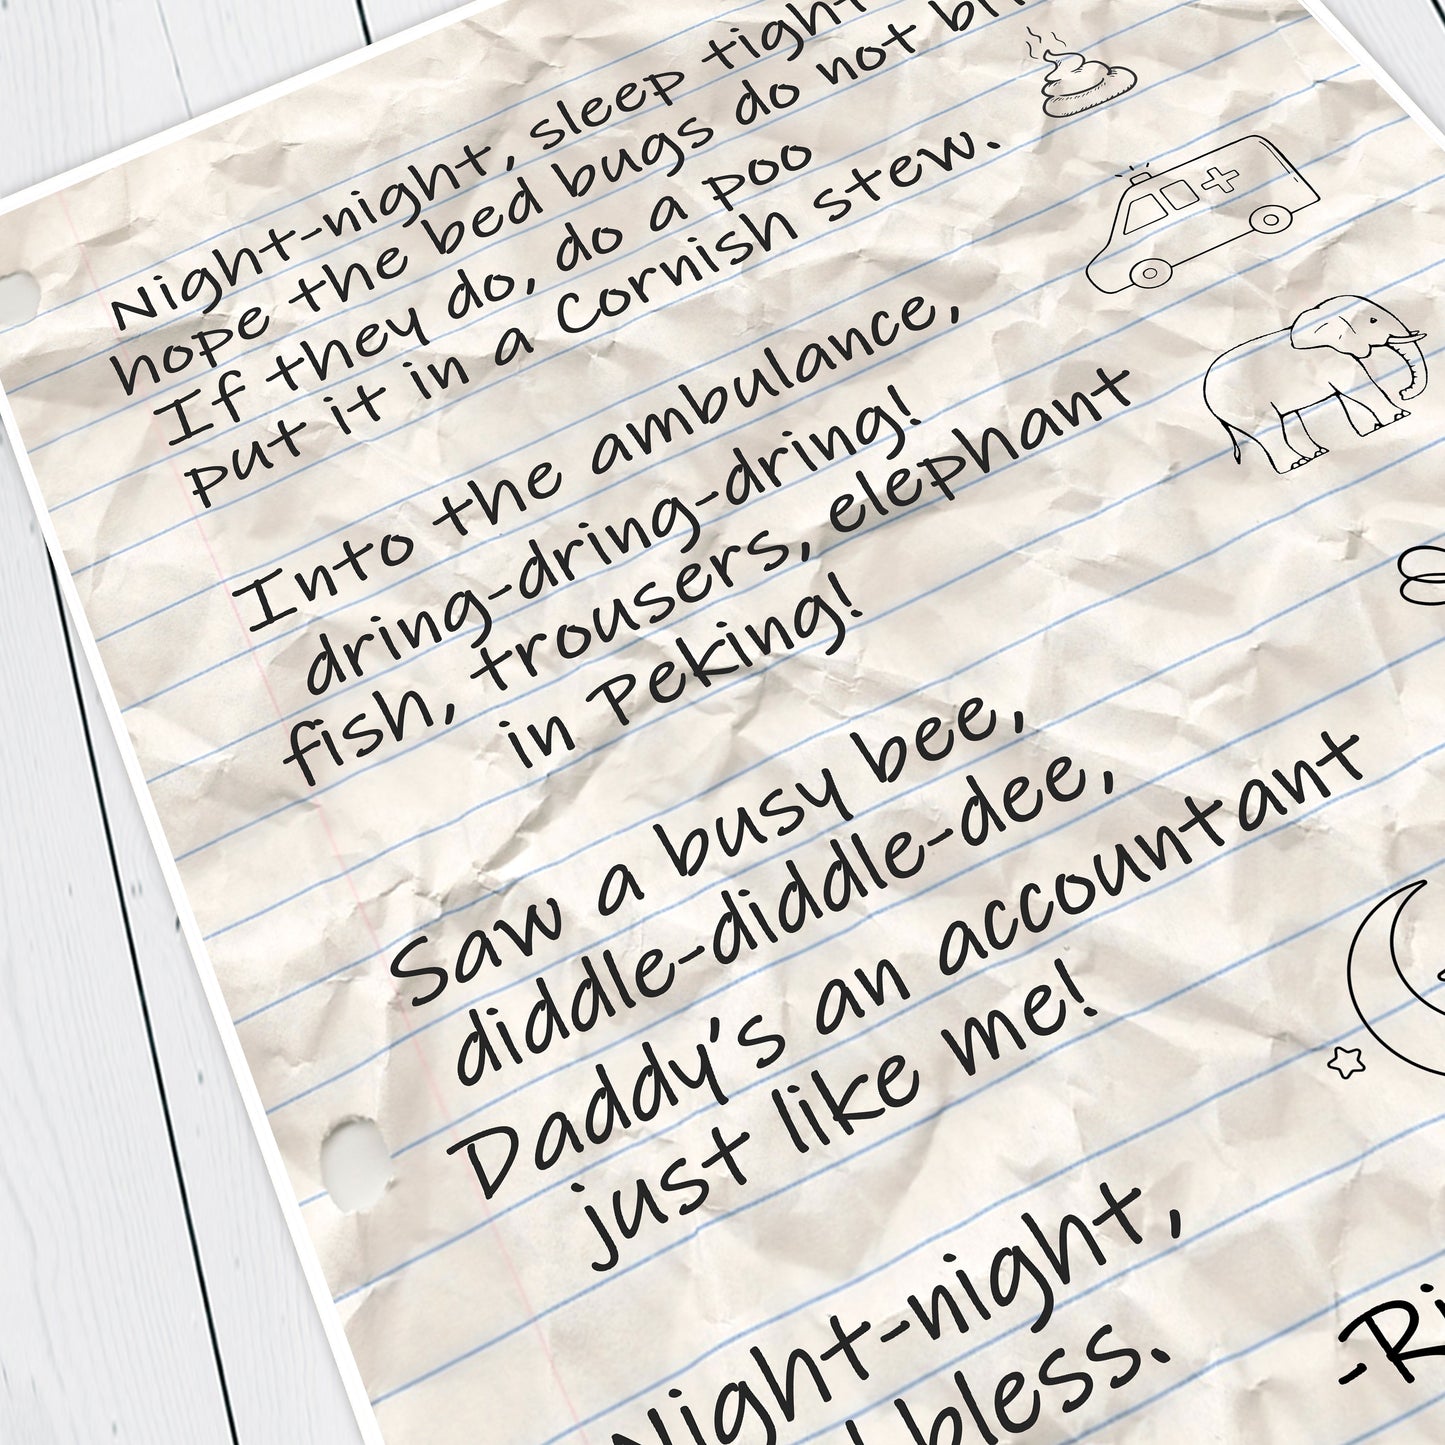 Night-night, sleep tight
hope the bed bugs do not
If they do, do a poo
put it in a Cornish stew.
Into the ambulance,
dring-dring-dring-dring!
fish, trousers, elephant
in Peking!
Saw a busy bee,
diddle-diddle-diddle-dee,
Daddy's an accountant
just like me!
Night-night,
bless.